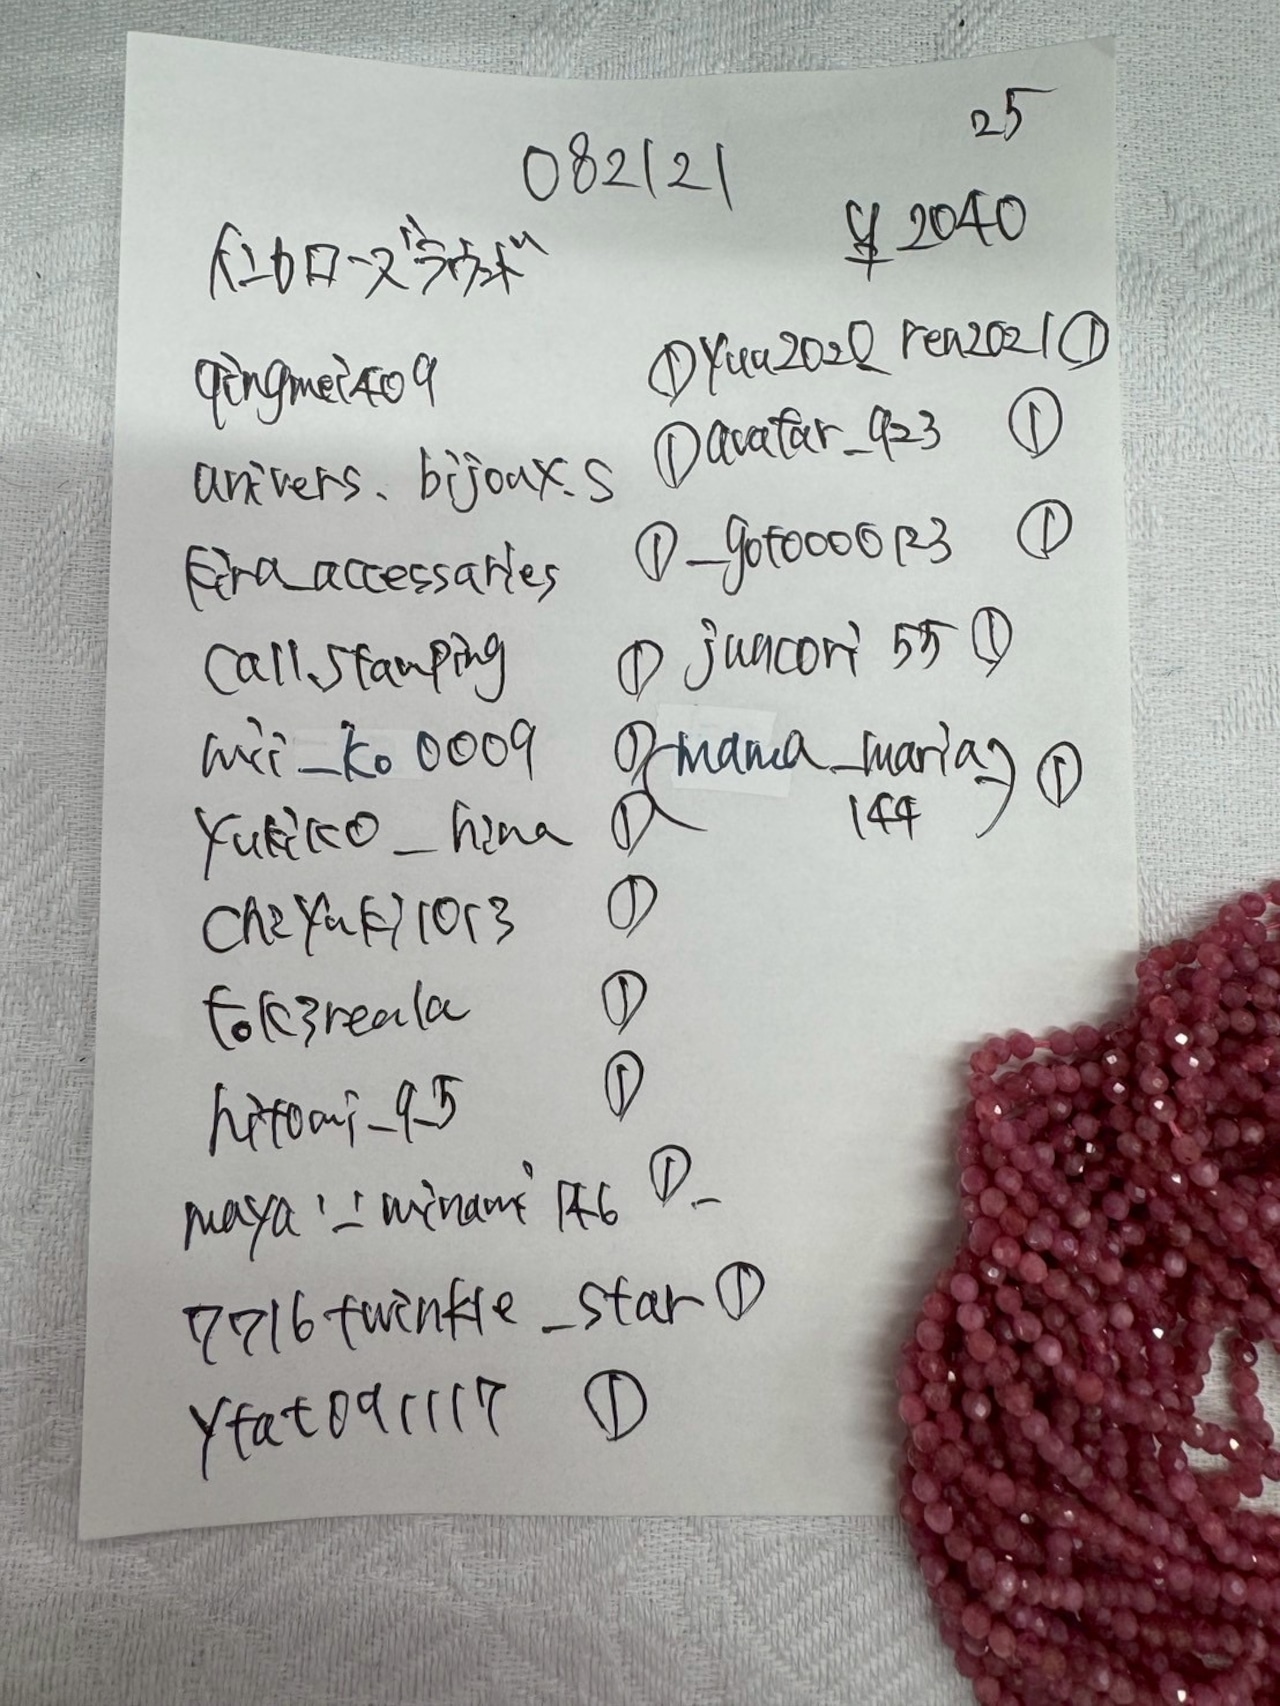 25
082121
¥2040
インカローズラウンド
qingmei409 ①
anivers.bijoux.s ①
kira_accessaries ①
call.stamping ①
mii_ko0009 ①
yukiko_hina ①
chiyuki1013 ①
tok3reala ①
hitomi_9_5 ①
maya minami 146 ①
7716twinkle_star ①
ytat091117 ①
yua2020_ren2021 ①
avatar_923 ①
_goto000123 ①
juncori55 ①
mama_maria_ ①
144